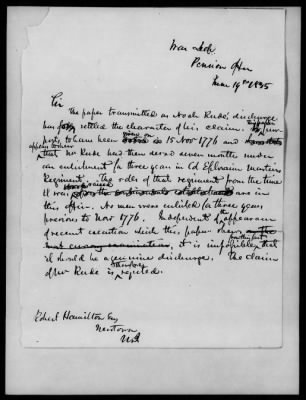 War Dept
Pension Office
June 19th 1835
Sir
The paper transmitted as Noah Rude's discharge
has settled the character of his claim. It pur-
ports to have been given on 15 Nov 1776 and
appears to shew
that Mr Rude had then served seven months under
an enlistment for three years in Col Ephraim Martin's
Regiment. The rolls of that regiment from the time
it was raised are in
this office. No men were enlisted for three years
previous to Nov 1776. Independent of the appearance
of recent execution which this paper shews
it is impossible that
it should be a genuine discharge. The claim
of Mr Rude is therefore rejected.
Robert Hamilton Esq
Newtown
NJ